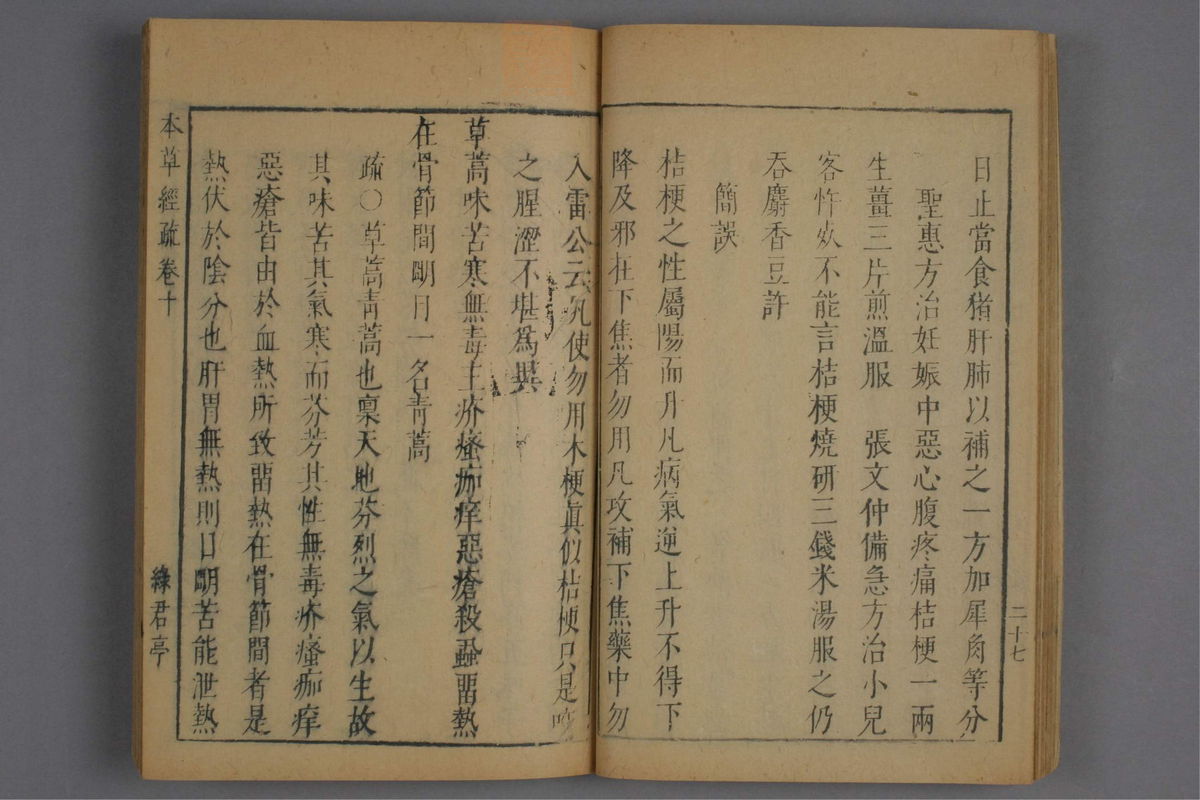 日止當食猪肝肺以補之一方加犀角等分
聖惠方治妊娠中惡心腹疼痛桔梗一兩
生薑三片煎溫服　張文仲備急方治小兒
客忤欬不能言桔梗燒研三錢米湯服之仍
吞麝香豆許
簡誤
桔梗之性屬陽而升凡病氣逆上升不得下
降及邪在下焦者勿用凡攻補下焦藥中勿
二十七
入雷公云凡使勿用木梗真似桔梗只是
之腥澀不堪爲異
草蒿味苦寒無毒主疥瘙痂痒惡瘡殺蝨畱熱
在骨節間明目一名青蒿
疏○草蒿青蒿也禀天地芬烈之氣以生故
其味苦其氣寒而芬芳其性無毒疥瘙痂痒
惡瘡皆由於血熱所致畱熱在骨節間者是
熱伏於陰分也肝胃無熱則目明苦能泄熱
本草經疏卷十
綠君亭